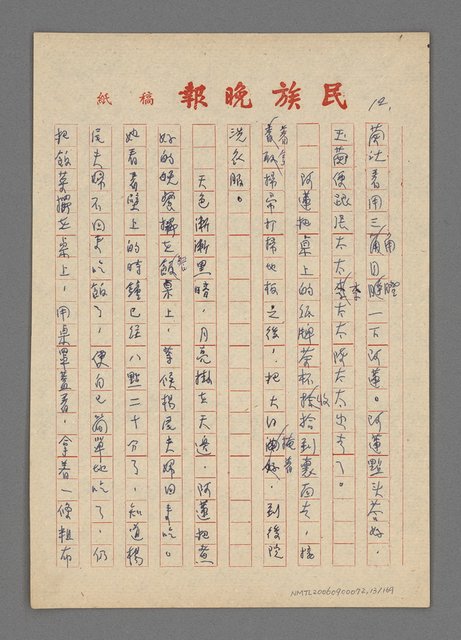 民族晚報 稿紙
12.
蘭沈着用三角目瞪一下阿蓮。阿蓮點頭答好,
玉蘭便跟屈太太李太太陳太太出去了。
阿蓮把桌上的紙牌茶杯收拾到裏面去,接
着拿掃帚打掃地板之後,把大門掩着,到後院
洗衣服。
天色漸漸黑暗,月亮掛在天邊,阿蓮把煮
好的晚餐擺在飯桌上,等候楊屈夫婦回來吃。
她看看壁上的時鐘已經八點二十分了,知道楊
屈夫婦不回來吃飯了,便自已簡單地吃了,仍
把飯菜擺在桌上,用桌罩蓋着,拿着一條粗布
NMTL20060900072,13/169